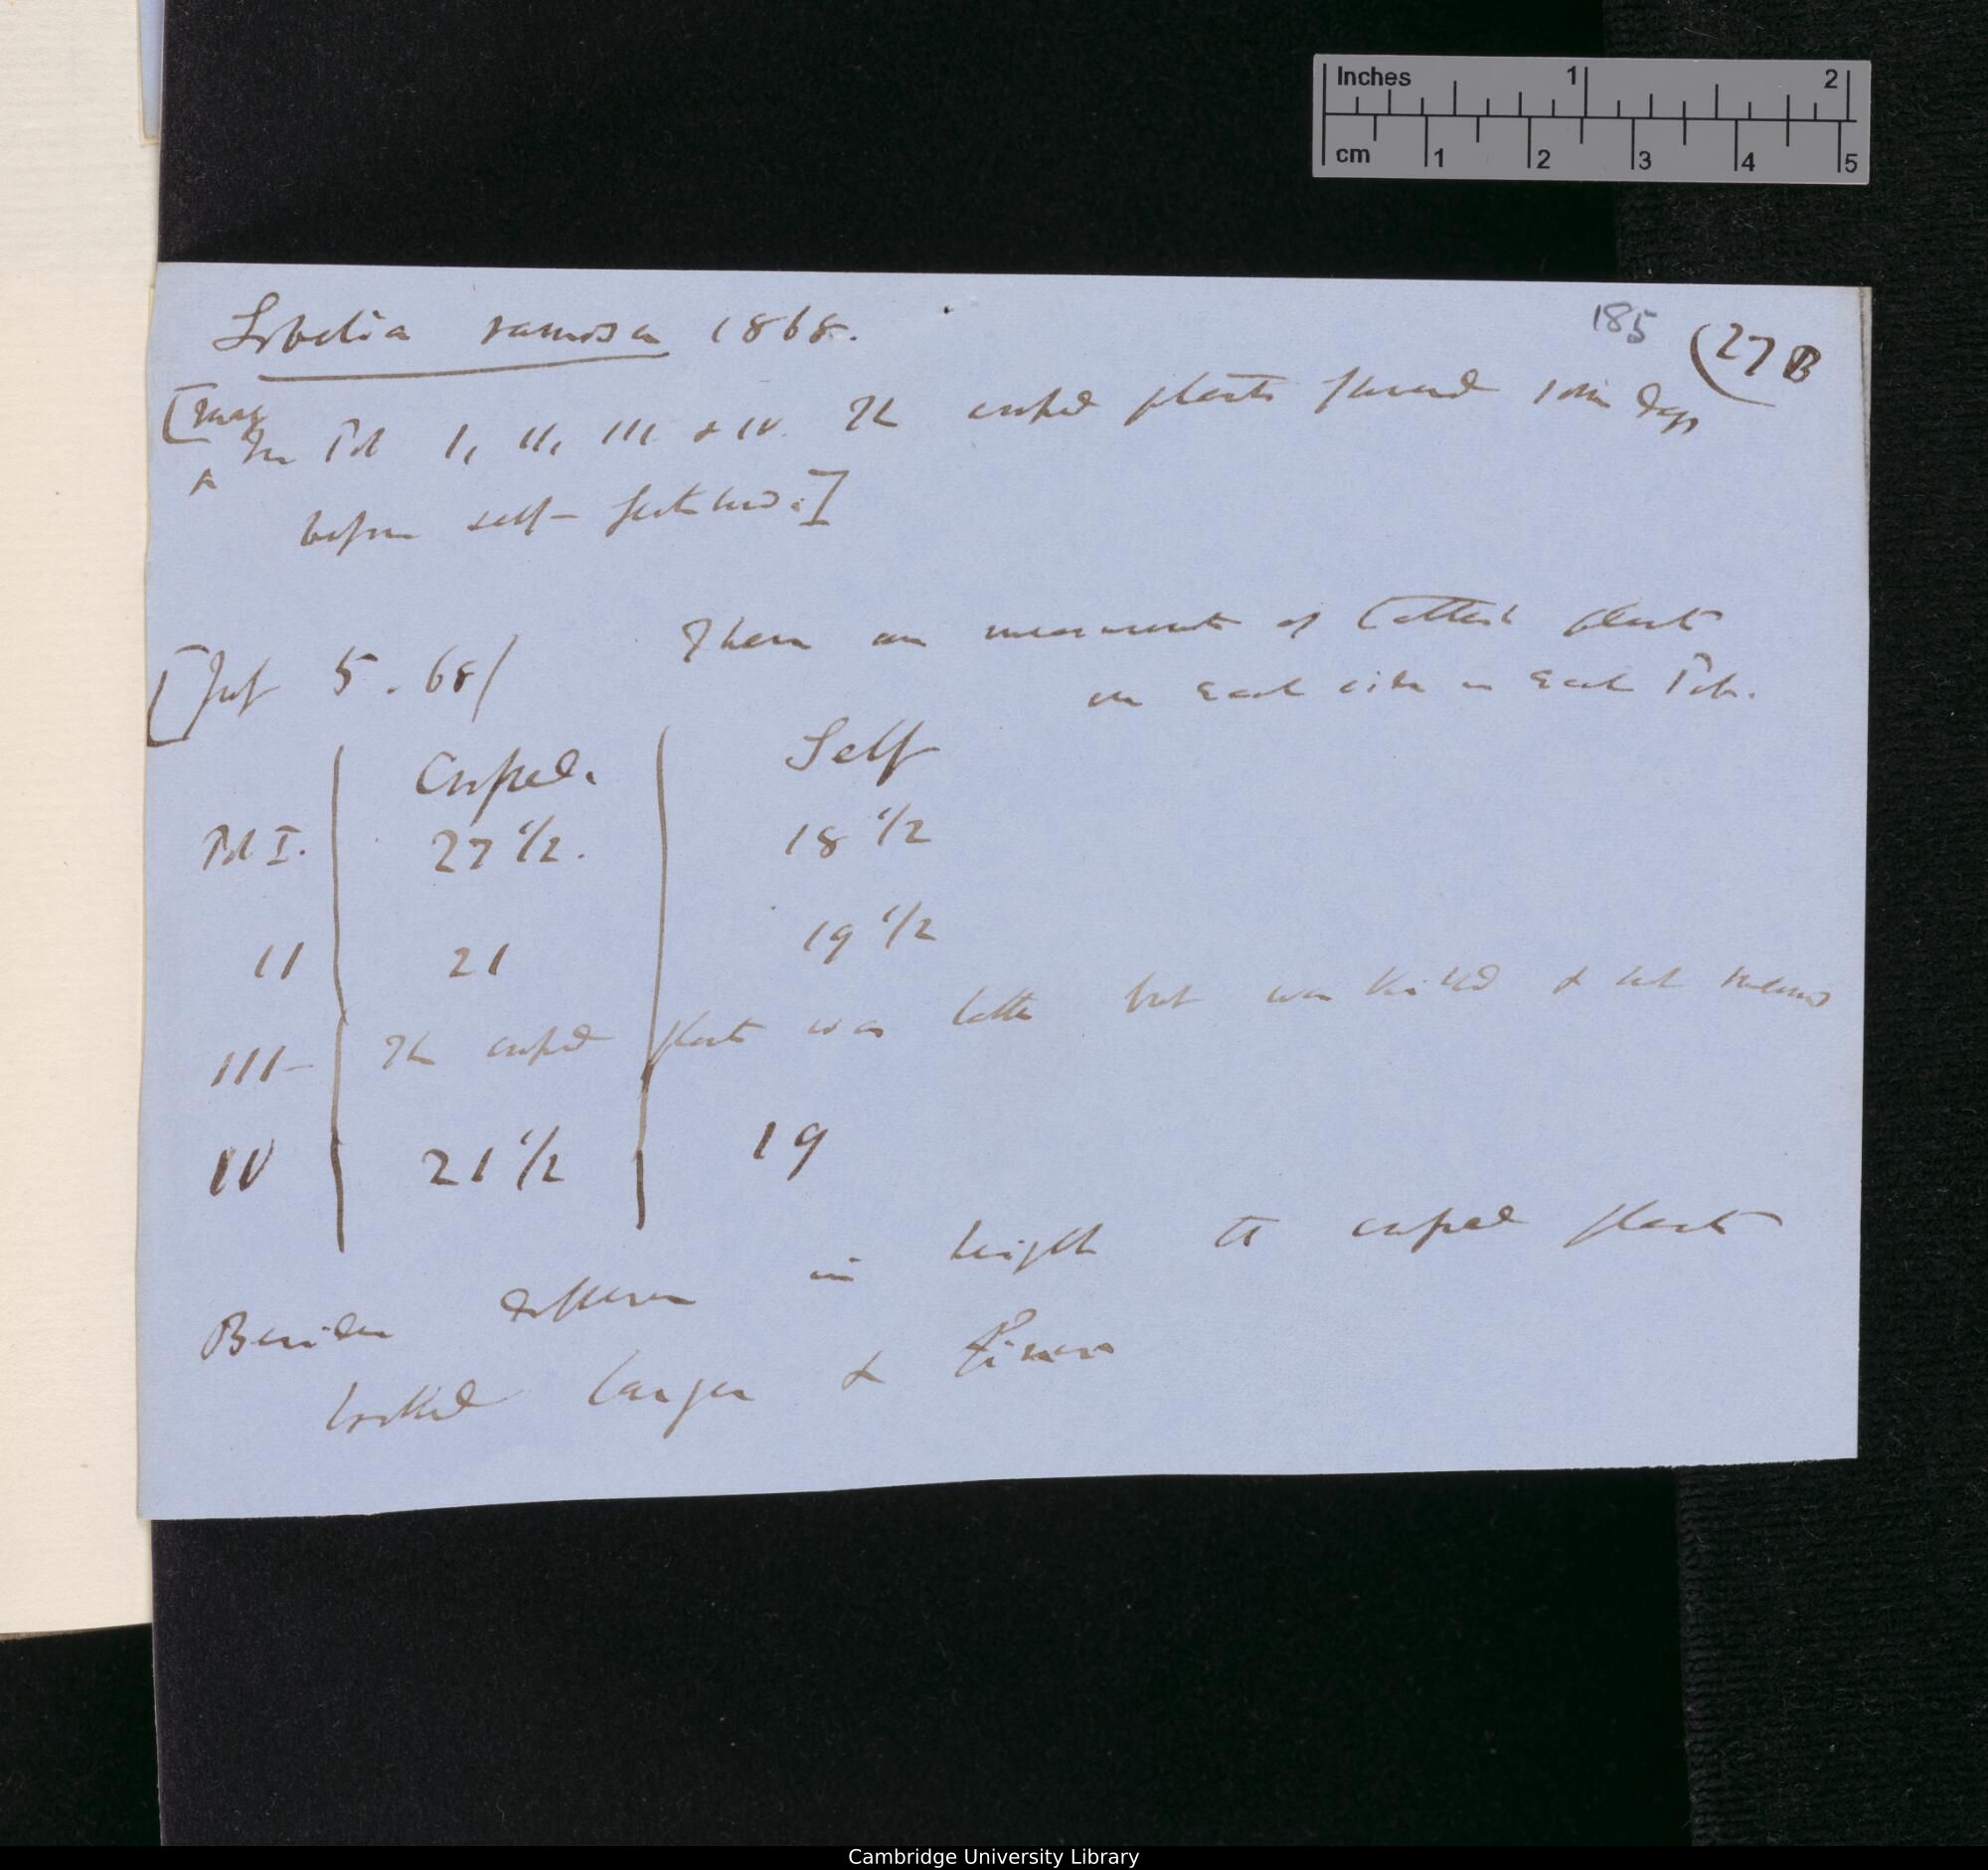 Inches 1 2
cm 1 2 3 4 5
Lobelia ramosa 1868.
185 (27 B
[May
In Pot I, II, III & IV. The crossed plants flowered some days
before self-fertilised.]
[July 5. 68/ These are measurements of tallest plants
on each side in each Pot.
Crossed. Self
Pot I. 27 1/2. 18 1/2
II 21 19 1/2
III – The crossed plant was taller but was killed & not measured
IV 21 1/2 19
Besides difference in height the crossed plants
looked larger & finer
Cambridge University Library